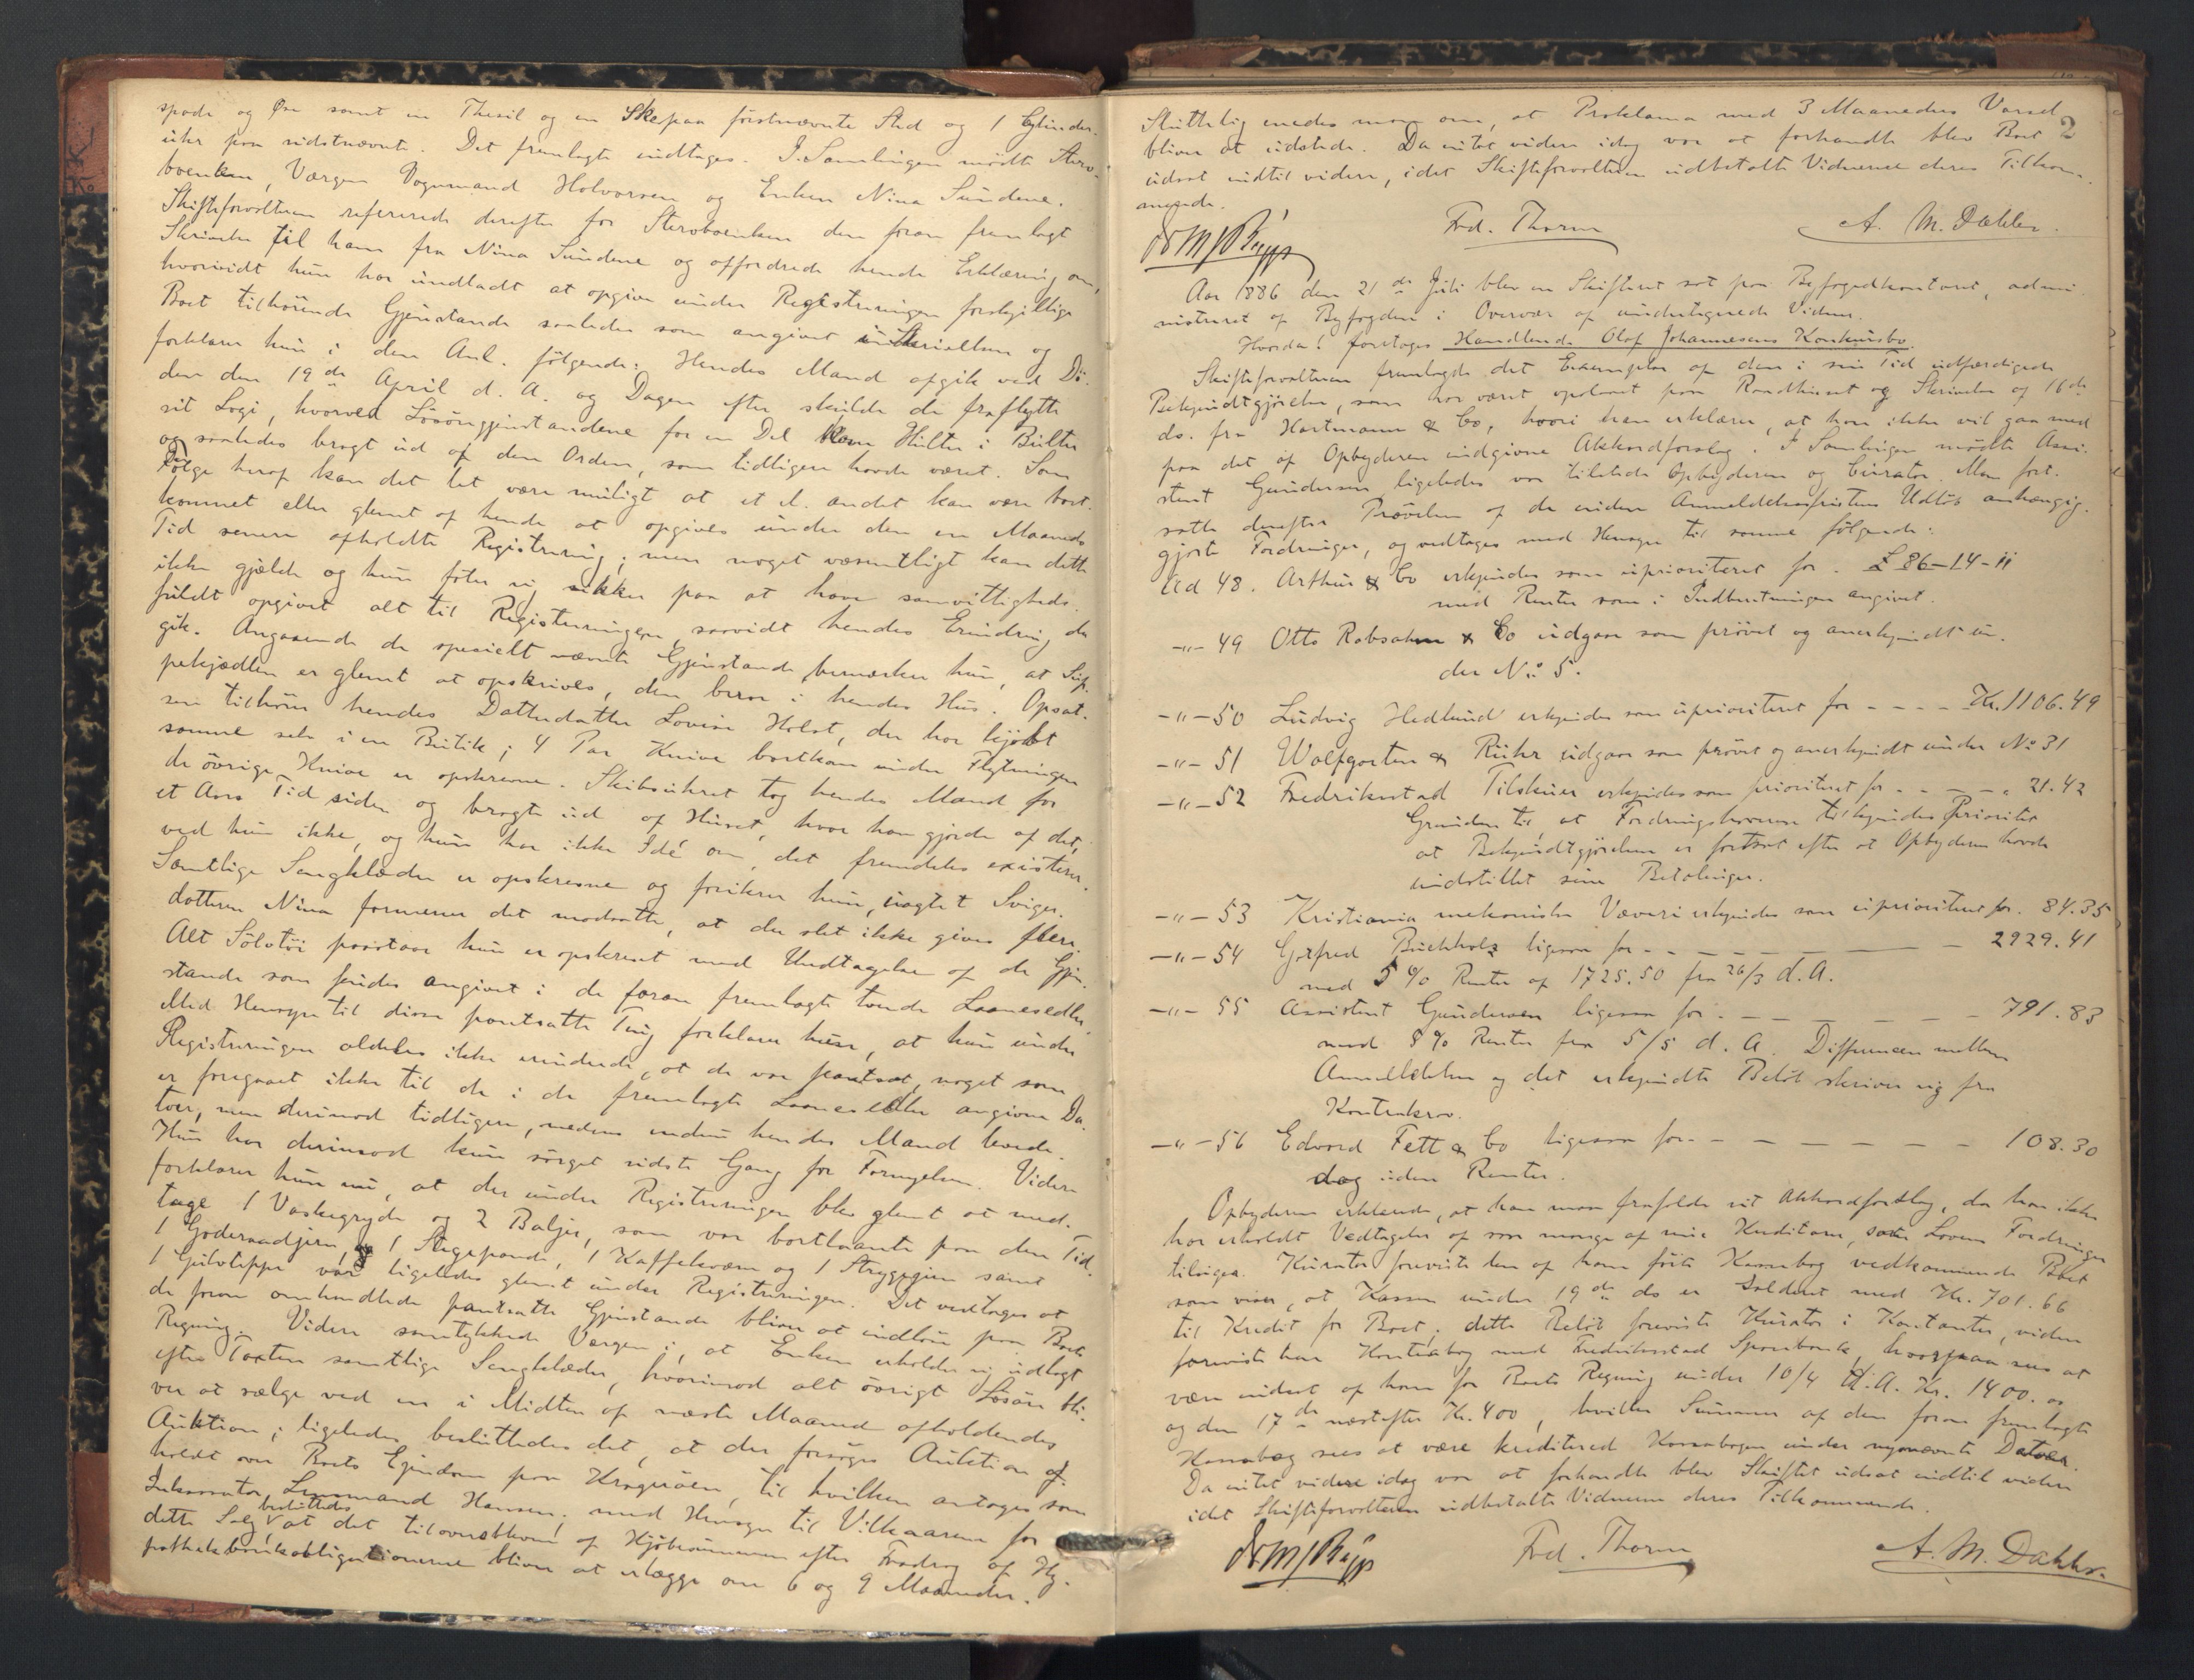 spade og Øse samt en Thesil og en Ske paa förstnævnte Sted og 1 Cylinder-
uhr paa sidstnævnte. Det fremlagte indtages. I Samlingen mödte Stervboenken, Værgen Vognmand Halvorsen og Enken Nina Sundene.
Skifteforvalteren refererede derefter for Stervboenken den foran fremlagt
Skrivelse til ham fra Nina Sundene og opfordrede hende Erklæring om,
hvorvidt hun har undladt at opgive under Registreringen forskjellige
Boet tilhörende Gjenstande saaledes som angivet i Skrivelsen og
forklarer hun i den Anl. fölgende: Hendes Mand afgik ved Dö-
den den 19de April d. A. og Dagen efter skulde de fraflytte
sit Logi, hvorved Lösöregjenstandene for en Del kom Hulter i Bulter
og saaledes bragt ud af den Orden, som tidligere havde været. Som
Fölge heraf kan det let være muligt at et el. andet kan være bort-
kommet eller glemt af hende at opgives under den en Maaneds
Tid senere afholdte Registrering; men noget væsentligt kan dette
ikke gjælde og hun föler sig sikker paa at have samvittigheds-
fuldt opgivet alt til Registreringen, saavidt hendes Erindring da
gik. Angaaende de specielt nævnte Gjenstande bemærker hun, at Sup-
pekjedlen er glemt at opskrives, den beror i hendes Hus. Opsat-
sen tilhörer hendes Datterdatter Lovise Holst, der har kjöbt
samme selv i en Butik; 4 Par Knive bortkom under Flytningen
de övrige Knive er opskrevne. Skibsuhret tog hendes Mand for
et Aars Tid siden og bragte ud af Huset, hvor han gjorde af det,
ved hun ikke, og hun har ikke Idé om, det fremdeles existerer.
Samtlige Sengklæder er opskrevne og forsikrer hun, uagtet Sviger-
datteren Nina formener det modsatte, at der slet ikke gives flere.
Alt Sölvtöi paastaar hun er opskrevet med Undtagelse af de Gjen-
stande som findes angivet i de foran fremlagte tvende Laanesedler.
Med Hensyn til disse pantsatte Ting forklarer hun, at hun under
Registreringen aldeles ikke erindrede, at de var pantsat, noget som
er foregaaet ikke til de i de fremlagte Laanesedler angivne Da-
toer, men derimod tidligere, medens endnu hendes Mand levede.
Hun har derimod kun sörget sidste Gang for Fornyelsen. Videre
forklarer hun nu, at der under Registreringen blev glemt at med-
tage 1 Vaskegryde og 2 Baljer, som var bortlaante paa den Tid.
1 Goderaadjern, 1 Stegepande, 1 Kaffekværn og 1 Strygejern samt
1 Gulvteppe var ligeledes glemt under Registreringen. Det vedtages at
de foran omhandlede pantsatte Gjenstande bliver at indlöse paa Boets
Regning. Videre samtykkede Værgen i, at Enken erholder sig udlagt
efter Taxten samtlige Sengklæder, hvorimod alt övrigt Lösöre bli-
ver at sælge ved en i Midten af næste Maaned afholdendes
Auktion; ligeledes besluttedes det, at der forsöges Auktion af-
holdt over Boets Eiendom paa Kragerøen, til hvilken antages som
Inkassator Lensmand Hansen, med Hensyn til Vilkaarene for
dette Salg besluttedes at det tiloversblevne af Kjöbesummen efter Fradrag af Hy-
pothekbankobligationerne bliver at erlægge om 6 og 9 Maaneder.
2
Sluttelig enedes man om, at Proklama med 3 Maaneders Varsel
bliver at udstede. Da intet videre idag var at forhandle blev Boet
udsat indtil videre, idet Skifteforvalteren udbetalte Vidnerne deres Tilkom-
mende.
Fred. Thorn A. M. Dahler.
Aar 1886 den 21de Juli blev en Skifteret sat paa Byfogedkontoret, admi-
nistreret af Byfogden i Overvær af undertegnede Vidner.
Hvorda! foretoges Handlende Olof Johannesens Konkursbo.
Skifteforvalteren fremlagde det Exemplar af den i sin Tid udfærdigede
Bekjendtgjörelse, som har været opslaaet paa Raadhuset og Skrivelse af 16de
ds. fra Hartmann & Co, hvori han erklærer, at han ikke vil gaa med
paa det af Opbyderen indgivne Akkordforslag. I Samlingen mödte Assi-
stent Gundersen, ligeledes var tilstede Opbyderen og Curator. Man fort-
satte derefter Prövelsen af de siden Anmeldelsesfristens Udlöb anhængig-
gjorte Fordringer, og vedtages med Hensyn til samme fölgende:
Ad 48. Arthur & Co erkjendes som uprioriteret for. £ 86-14-11
med Renter som i Indberetningen angivet.
-"- 49 Otto Robsahm & Co udgaar som prövet og anerkjendt un-
der No 5.
-"- 50 Ludvig Hedlund erkjendes som uprioriteret for - - - - Kr. 1106.49
-"- 51 Wolfgarten & Rühr udgaar som prövet og anerkjendt under No 31
-"- 52 Fredrikstad Tilskuer erkjendes som prioriteret for - - - - 21.42
Grunden til, at Fordringshaveren tilkjendes Prioritet
at Bekjendtgjörelsen er fortsat efter at Opbyderen havde
indstillet sine Betalinger.
-"- 53 Kristiania mekaniske Væveri erkjendes som uprioriteret for. 84.35
-"- 54 Gotfred Buchholz ligesaa for - - - - - 2929.41
med 5 % Renter af 1725.50 fra 26/3 d. A.
-"- 55 Assistent Gundersen ligesaa for - - - - - 791.83
med 8 % Renter fra 5/5 d. A. Differencen mellem
Anmeldelsen og det erkjendte Belöb skriver sig fra
Kontrakrav.
-"- 56 Edvard Fett & Co ligesaa for - - - - - - 108.30
dog uden Renter.
Opbyderen erklærede, at han maa frafalde sit Akkordforslag, da han ikke
har erholdt Vedtagelse af saa mange af sine Kreditorer, som Loven Fordringer
tilsiger. Kurator foreviste den af ham förte Kassabog vedkommende Boet
som viser, at Kassen under 19de ds er Salderet med Kr. 701.66
til Kredit for Boet; dette Belöb foreviste Kurator i Kontanter, videre
foreviste han Kontrabog med Fredriksstad Sparebank, hvorpaa sees at
være indsat af ham for Boets Regning under 10/4 d. A. Kr. 1400.00
og den 17de næstefter Kr. 400, hvilke Summer af den foran fremlagte
Kassabog sees at være krediteret Kassabogen under nysnævnte Datoer.
Da intet videre idag var at forhandle blev Skiftet udsat indtil videre
idet Skifteforvalteren udbetalte Vidnerne deres Tilkommende.
Fred. Thorn A. M. Dahler.